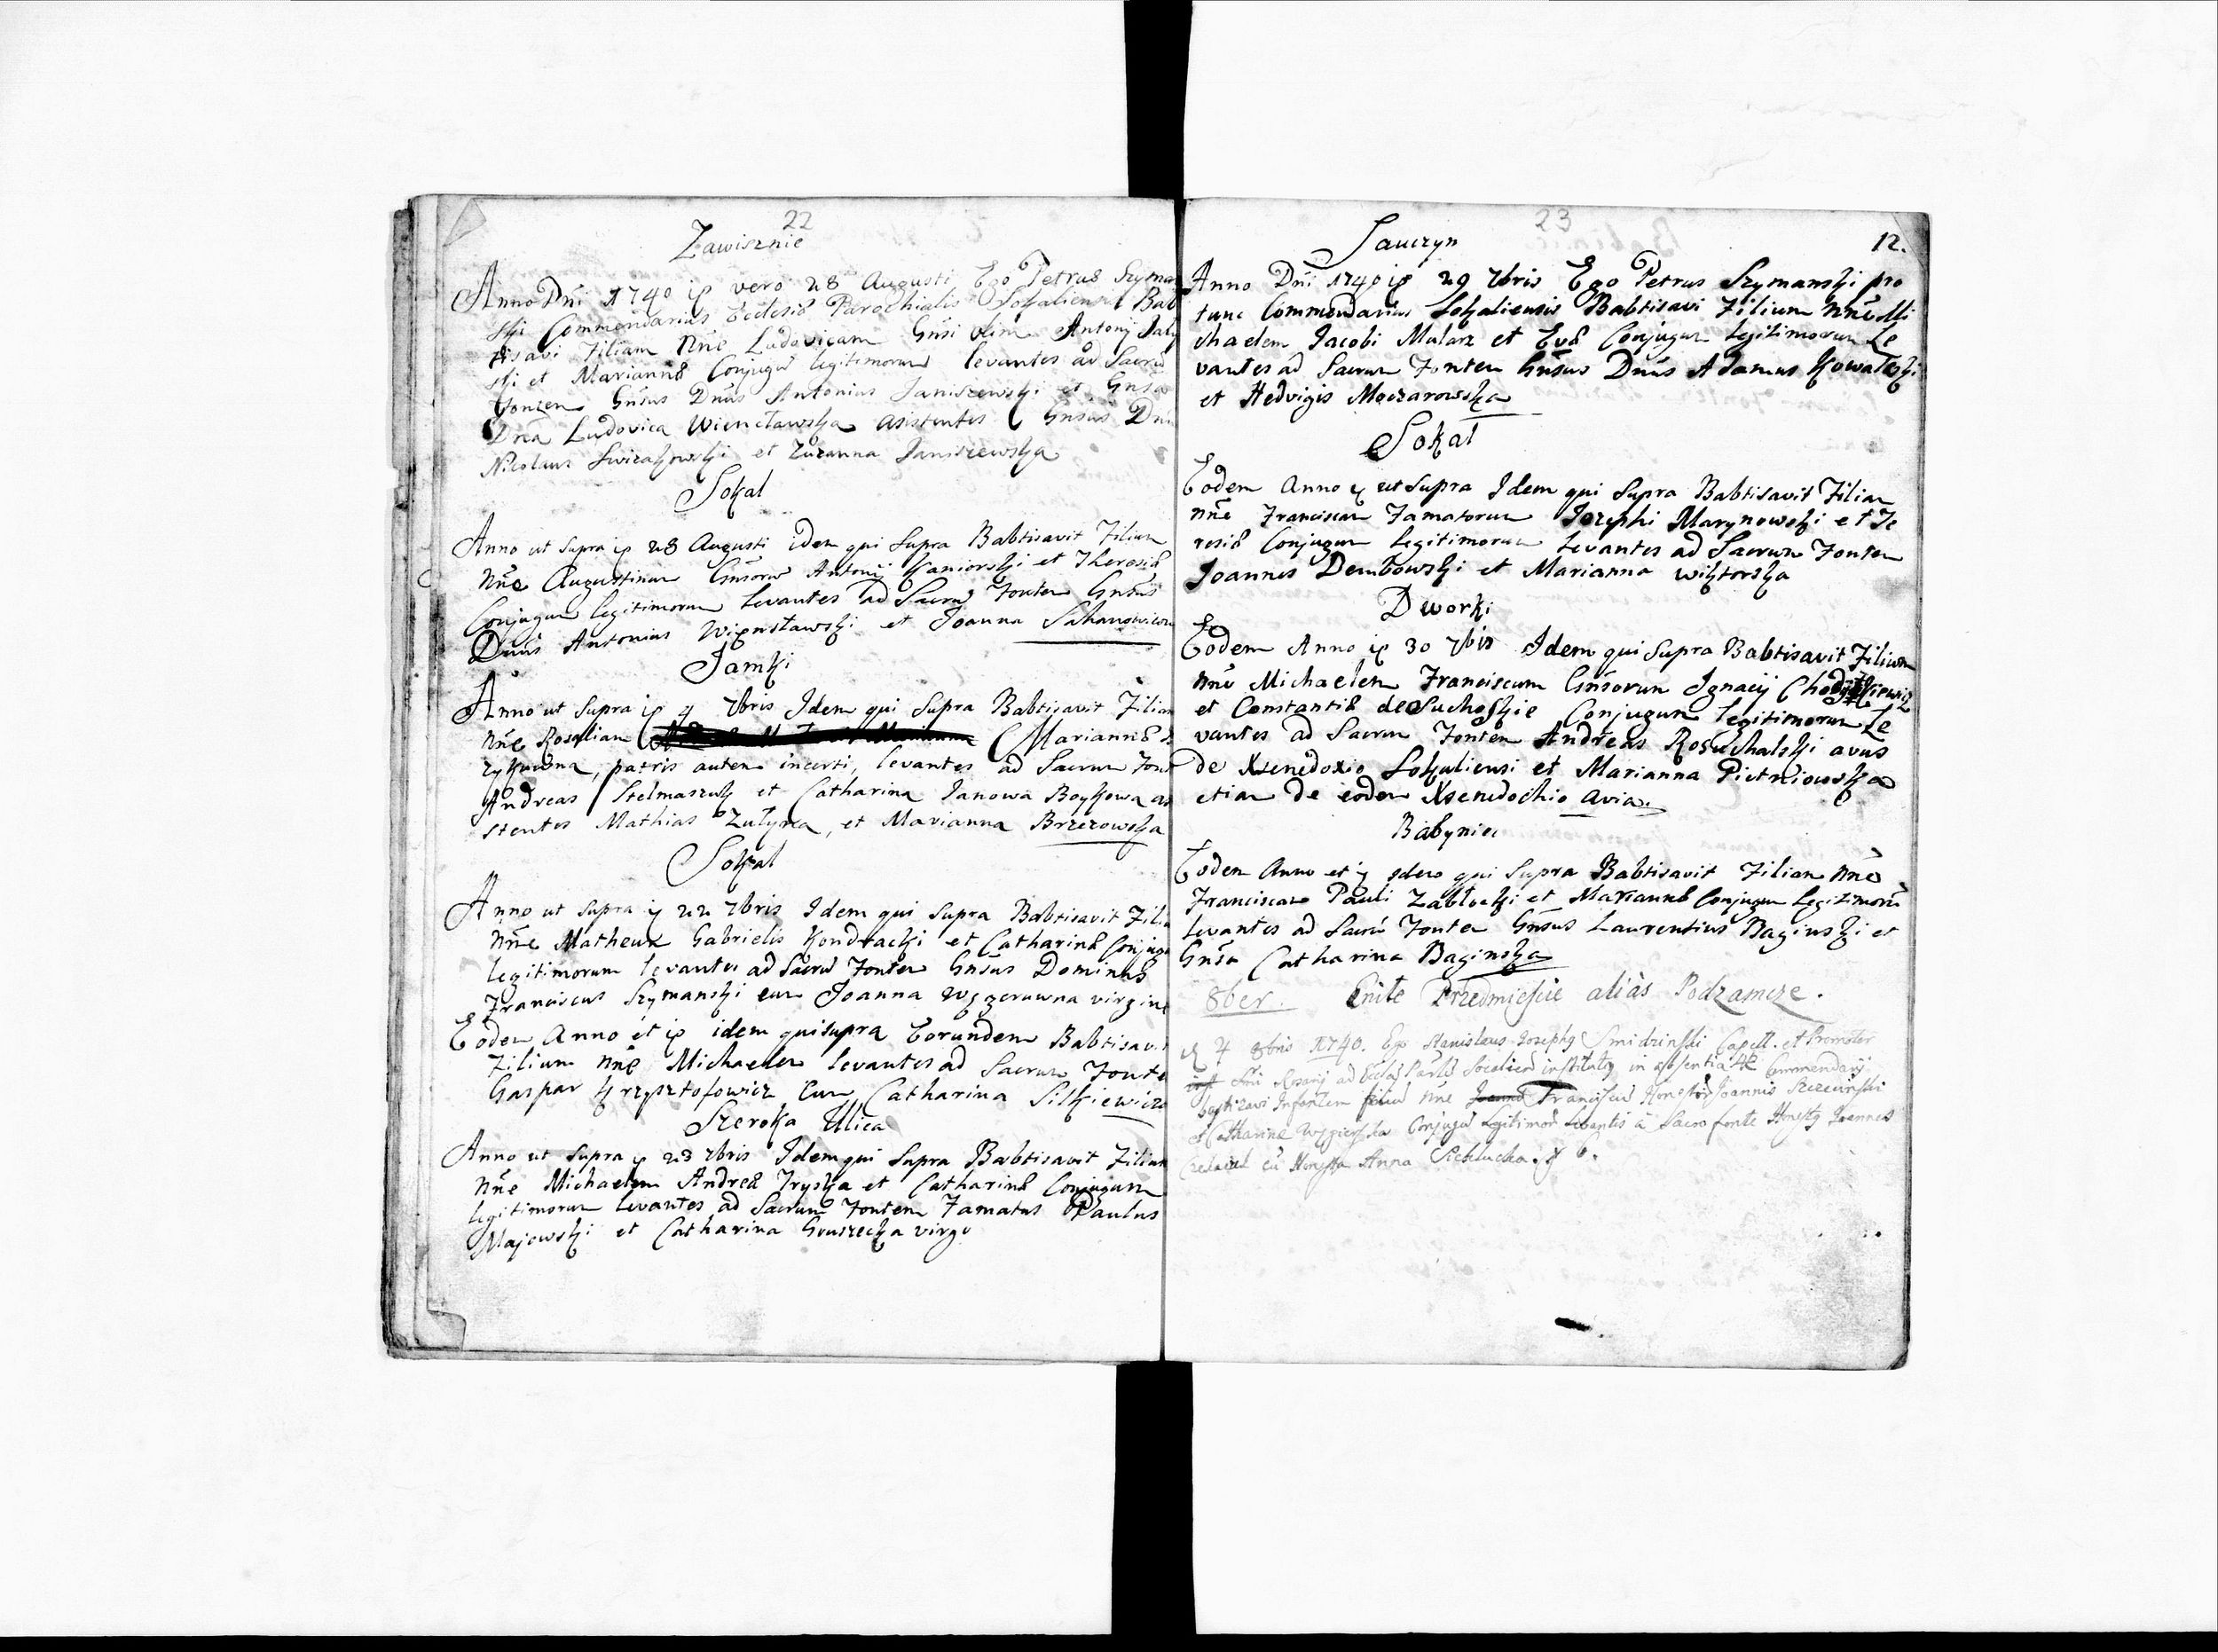 22
Zawisznie
Anno Dni 1740 vero 28 Augusti Ego Petrus Szyman
ski Commendarius Ecclesiæ Parochialis Sokaliensis Bab
tisavi Filiam Nne Ludovicam Gnsi olim Antonij
ski et Mariannæ Conjugu legitimorum levantes ad Sacru
fontem Gnsus Dnus Antonius Janiszewski et Gnsa
Dna Ludovica Wienclawska asistentes Gnsus Dnus
Nicolaus et Zuzanna Janiszewska
Sokal
Anno ut supra 28 Augusti idem qui supra Babtisavit Filium
Nne Augustinum Gnsoru Antonij Kaniorski et Theresiæ
Conjugum legitimorum Levantes ad Sacru Fontem Gnsus
Dnus Antonius et Joanna
Jamki
Anno ut supra 4 7bris Idem qui supra Babtisavit Filiam
Nne Rosaliam Mariannæ
patris autem incerti, levantes ad Sacrum Font
Andreas Stelmaszuk et Catharina Janowa Boykowa as
stentes Mathias et Marianna Brzezowska
Sokal
Anno ut supra 22 7bris Idem qui supra Babtisavit Filiu
Nne Matheum Gabrielis Kondracki et Catharinæ Conjugu
legitimorum levantes ad Sacru Fontem Gnsus Dominus
Franciscus Szymanski cum Joanna virgine
Eodem Anno et idem qui supra Eorundem Babtisavit
Filium Nne Michaelem levantes ad Sacrum Fonte
Gaspar Krzysztofowicz cum Catharina
Szeroka Ulica
Anno ut supra 23 7bris Idem qui supra Babtisavit Filium
Nne Michaelem Andreæ Tryska et Catharinæ Conjugum
legitimorum Levantes ad Sacrum Fontem Famatus Paulus
Majewski et Catharina virgo
23
12.
Sauczyn
Anno Dni 1740 29 7bris Ego Petrus Szymanski pro
tunc Commendarius Sokaliensis Babtisavi Filium Nne Mi
chaelem Jacobi Mularz et Evæ Conjugum legitimorum Le
vantes ad Sacrum Fontem Gnsus Dnus Adamus Kowalski
et Hedvigis Moczarowska
Sokal
Eodem Anno ut supra Idem qui supra Babtisavit Filiam
Nne Franciscam Famatorum Jozephi Marynowski et Te
resiæ Conjugum legitimorum Levantes ad Sacrum Fontem
Joannes Dembowski et Marianna Wiktorska
Dworki
Eodem Anno 30 7bris Idem qui supra Babtisavit Filium
Nne Michaelem Franciscum Gnsorum Ignacij
et Constantiæ de Suchoskie Conjugum legitimorum Le
vantes ad Sacrum Fontem Andreas avus
de Xsenedoxio Sokaliensi et Marianna Pietniowska
etiam de eodem Xsenedochio avia.
Babynie
Eodem Anno et idem qui supra Babtisavit Filiam Nne
Franciscam Pauli Zablocki et Mariannæ Conjugum legitimoru
levantes ad Sacru Fontem Gnsus Laurentius Baginski et
Gnsa Catharina Baginska
8ber. Przedmiescie aliàs Podzamcze.
4 8bris 1740. Ego Stanislaus Josephus Capell. et Promotor
Rosarij ad in absentia Commendarij
baptizavi Infantem Nne Joannis
et Catharinæ Conjugu legitimor Levantis à Sacro fonte Joannes
cu Honesta Anna